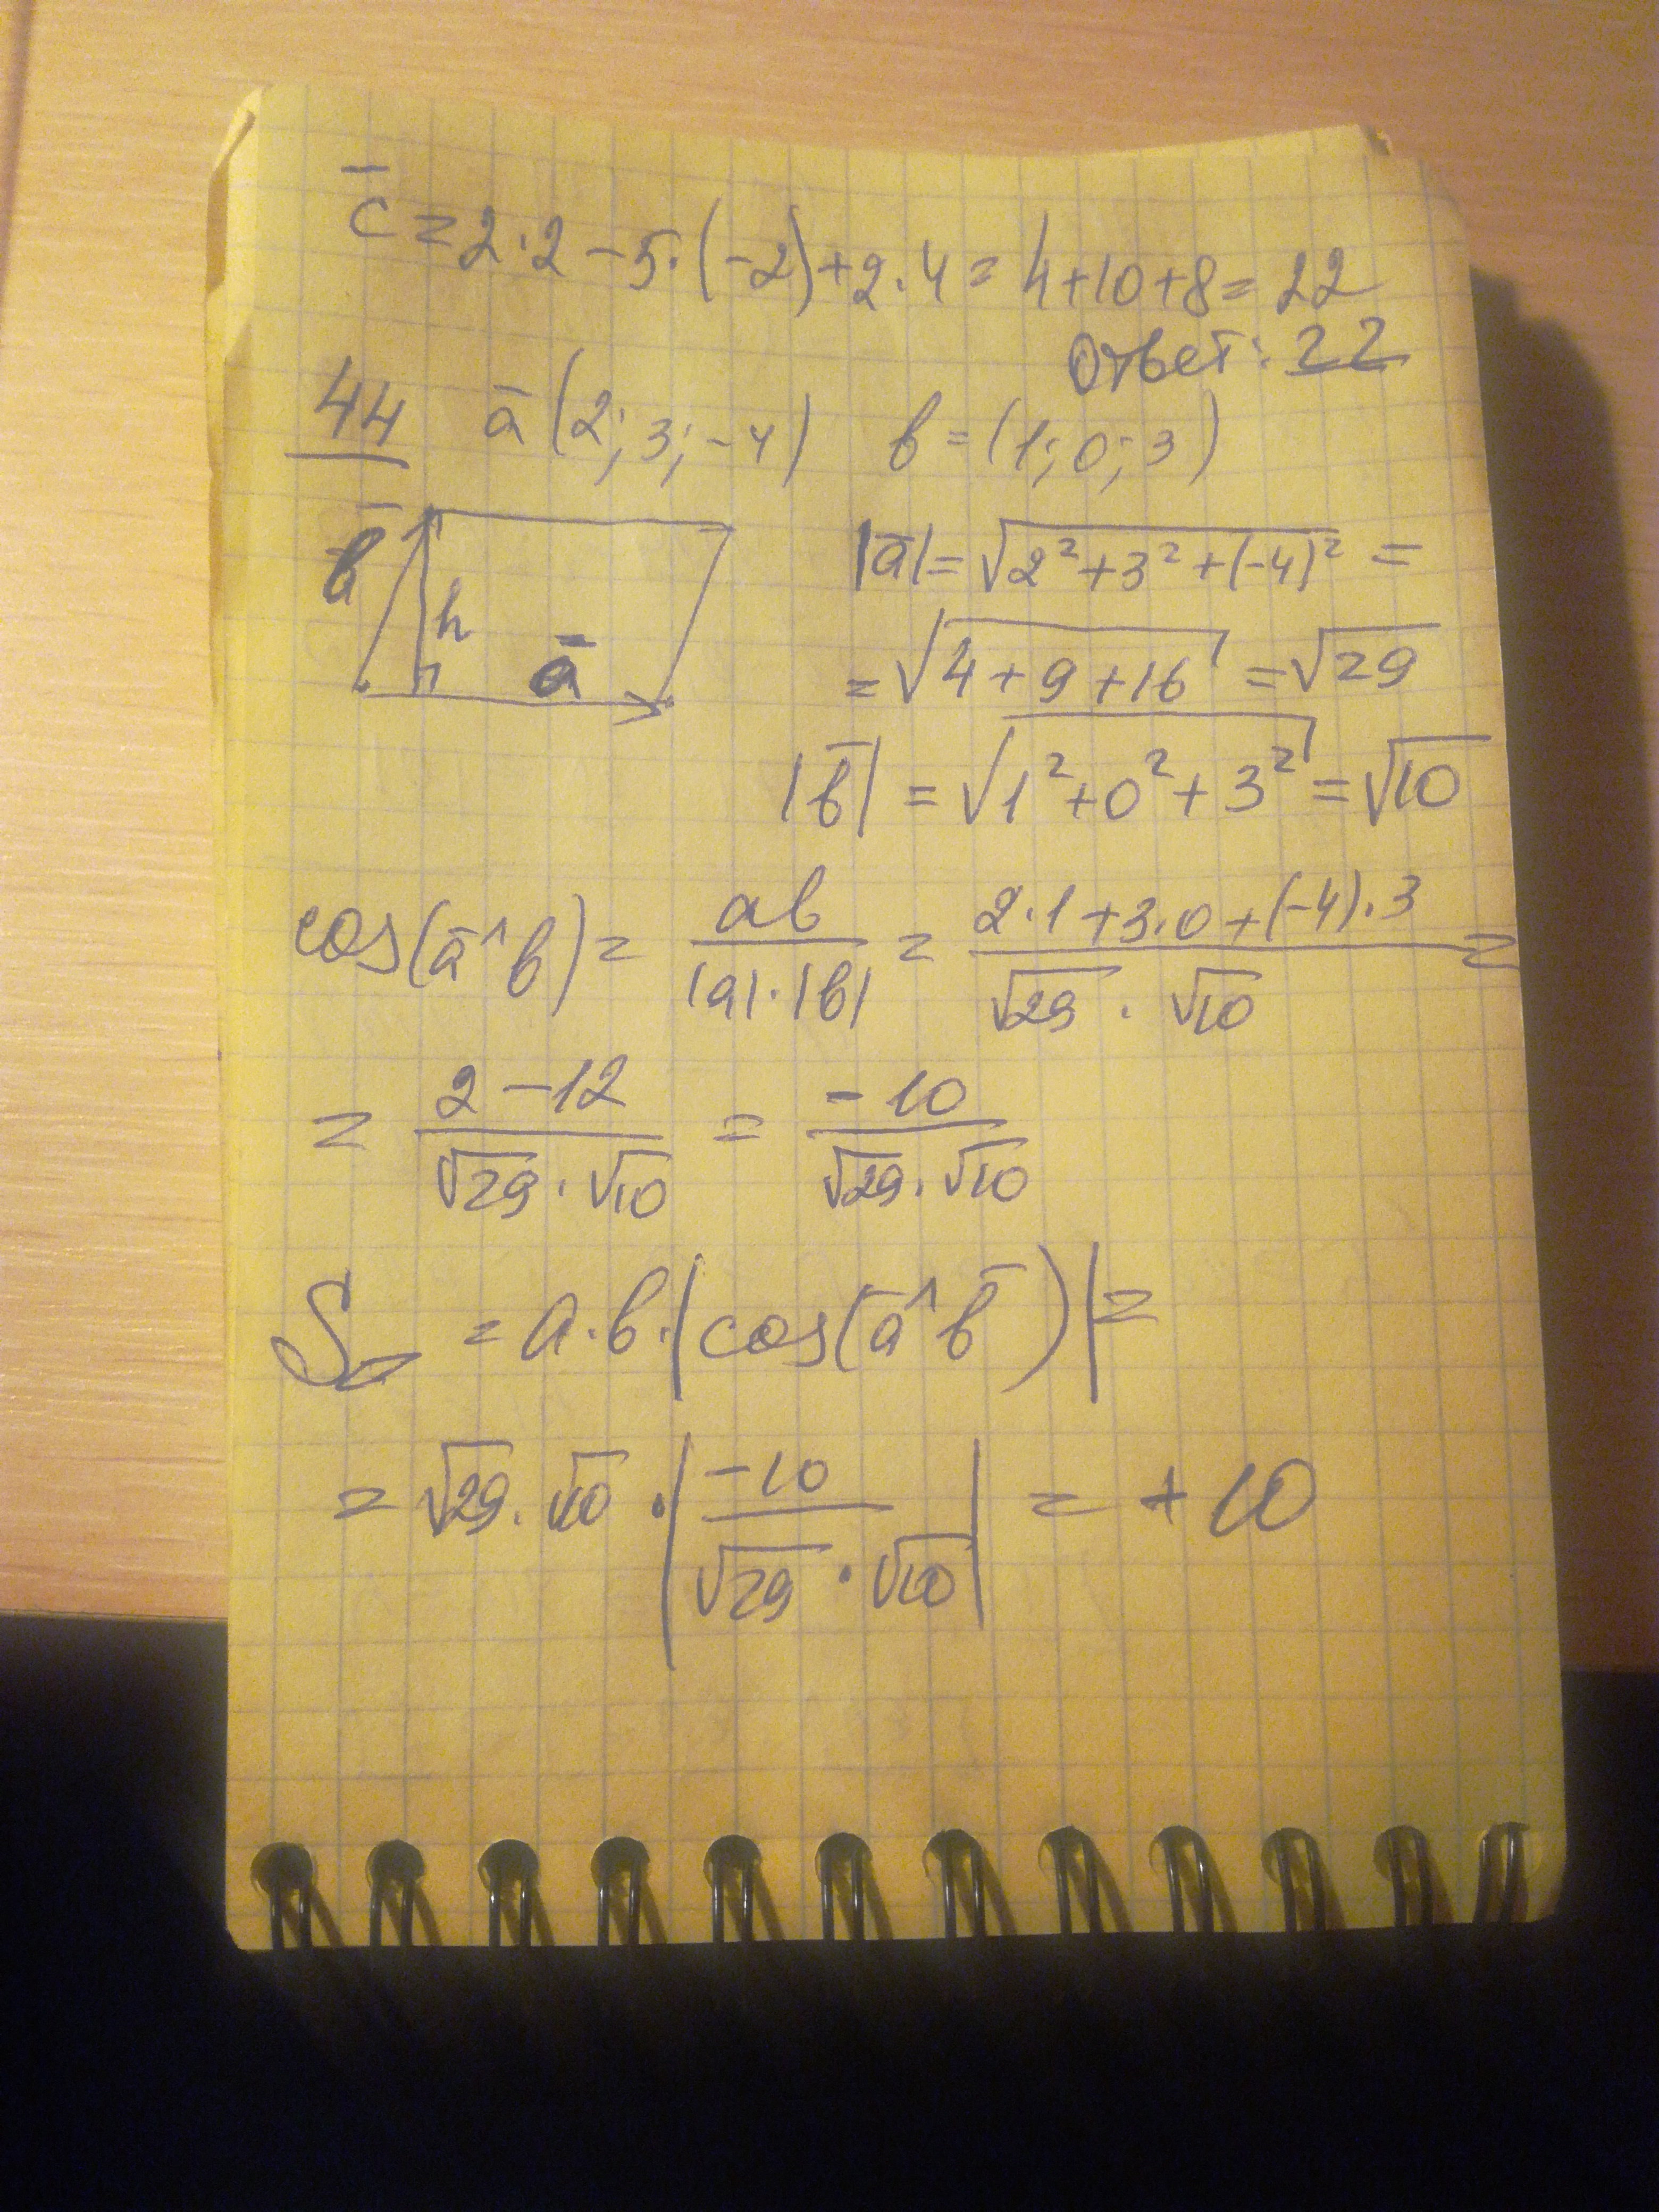 c̄ = 2·2 − 5·(−2) + 2·4 = 4+10+8 = 22
Ответ: 22
44 ā (2; 3; −4) в = (1; 0; 3)
в̄ h ā
|ā| = √(2² + 3² + (−4)²) =
= √(4 + 9 + 16) = √29
|в̄| = √(1² + 0² + 3²) = √10
cos(ā^в) = aв / (|a|·|в|) = (2·1 + 3·0 + (−4)·3) / (√29 · √10) =
= (2 − 12) / (√29 · √10) = −10 / (√29 · √10)
S▱ = a·в·|cos(ā^в̄)| =
= √29 · √10 · |−10 / (√29 · √10)| = + 10